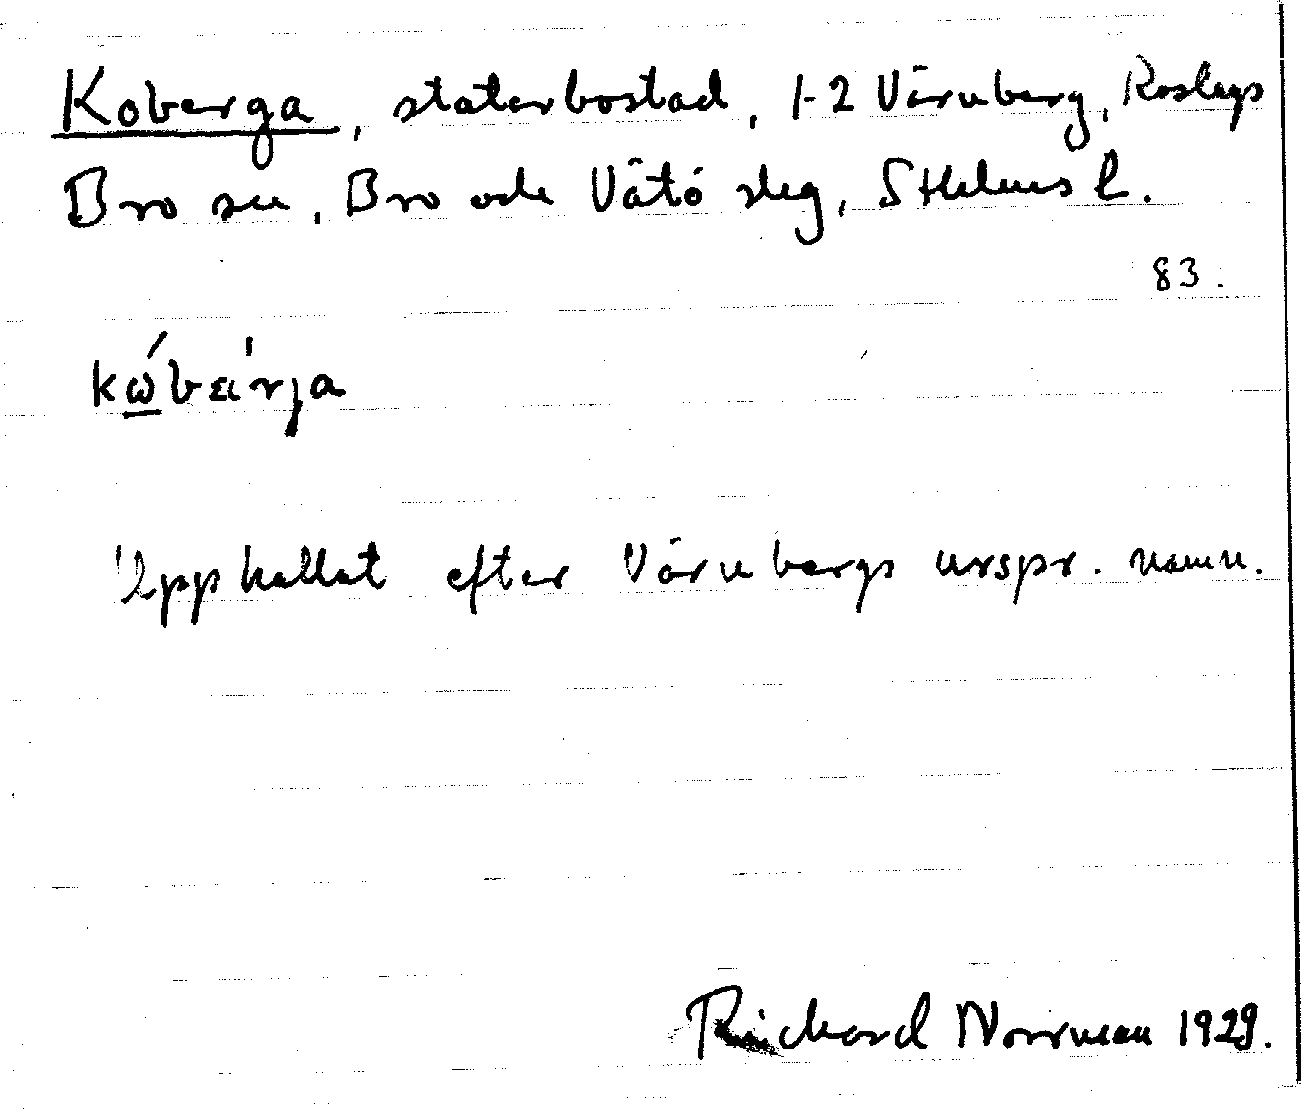 Koberga, statarbostad, 1-2 Värnberg, Roslags
Bro sn, Bro och Vätö slg, Sthlms l.
83.
kώbεárja
Uppkallat efter Värnbergs urspr. namn.
Richard Norrman 1929.